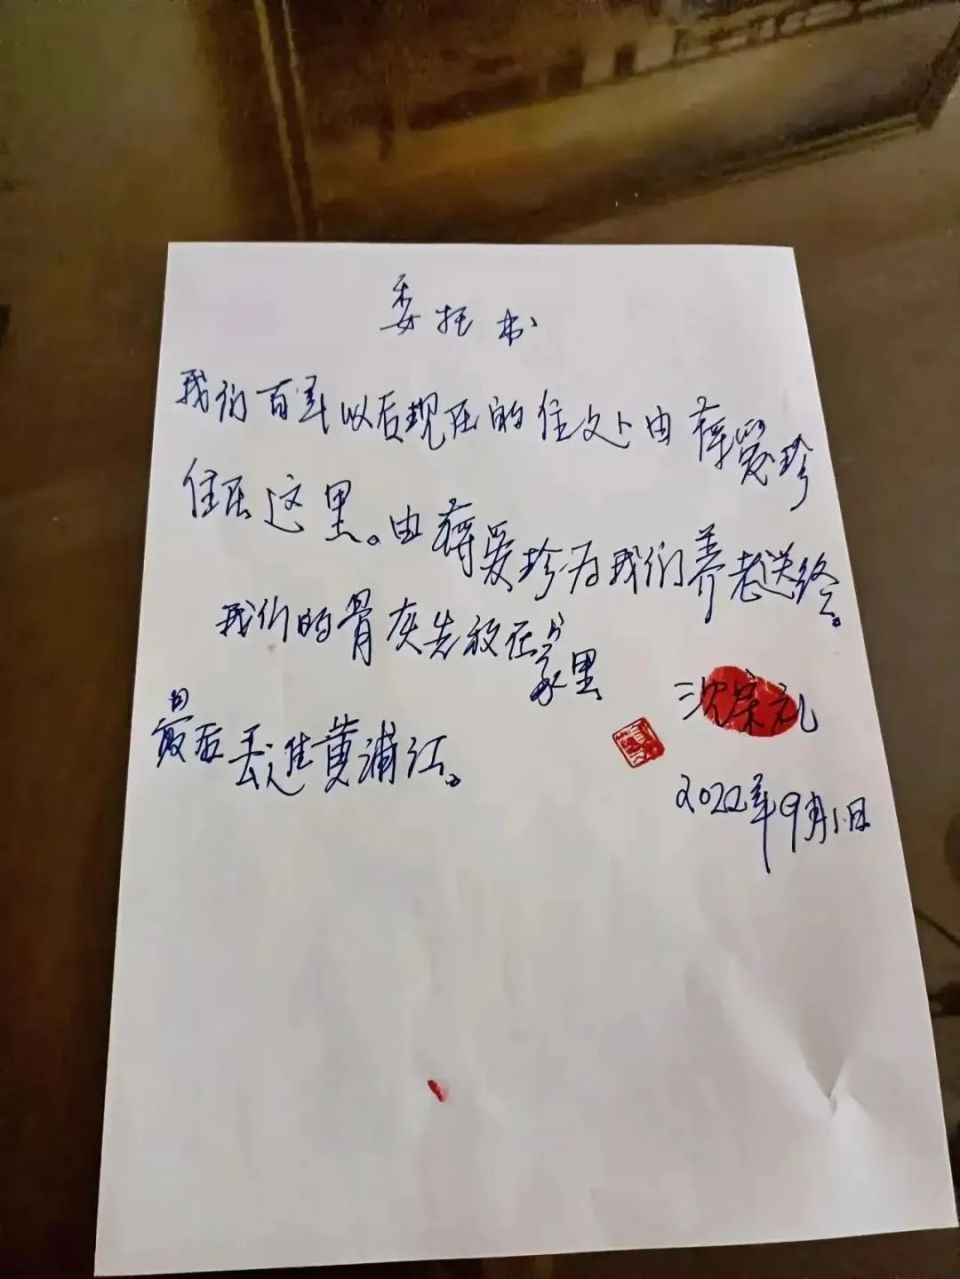 委托书
我们百年以后现在的住处由蒋爱珍
住在这里。由蒋爱珍为我们养老送终。
我们的骨灰先放在家里
最后丢进黄浦江。
沈宗礼
2022年9月1日